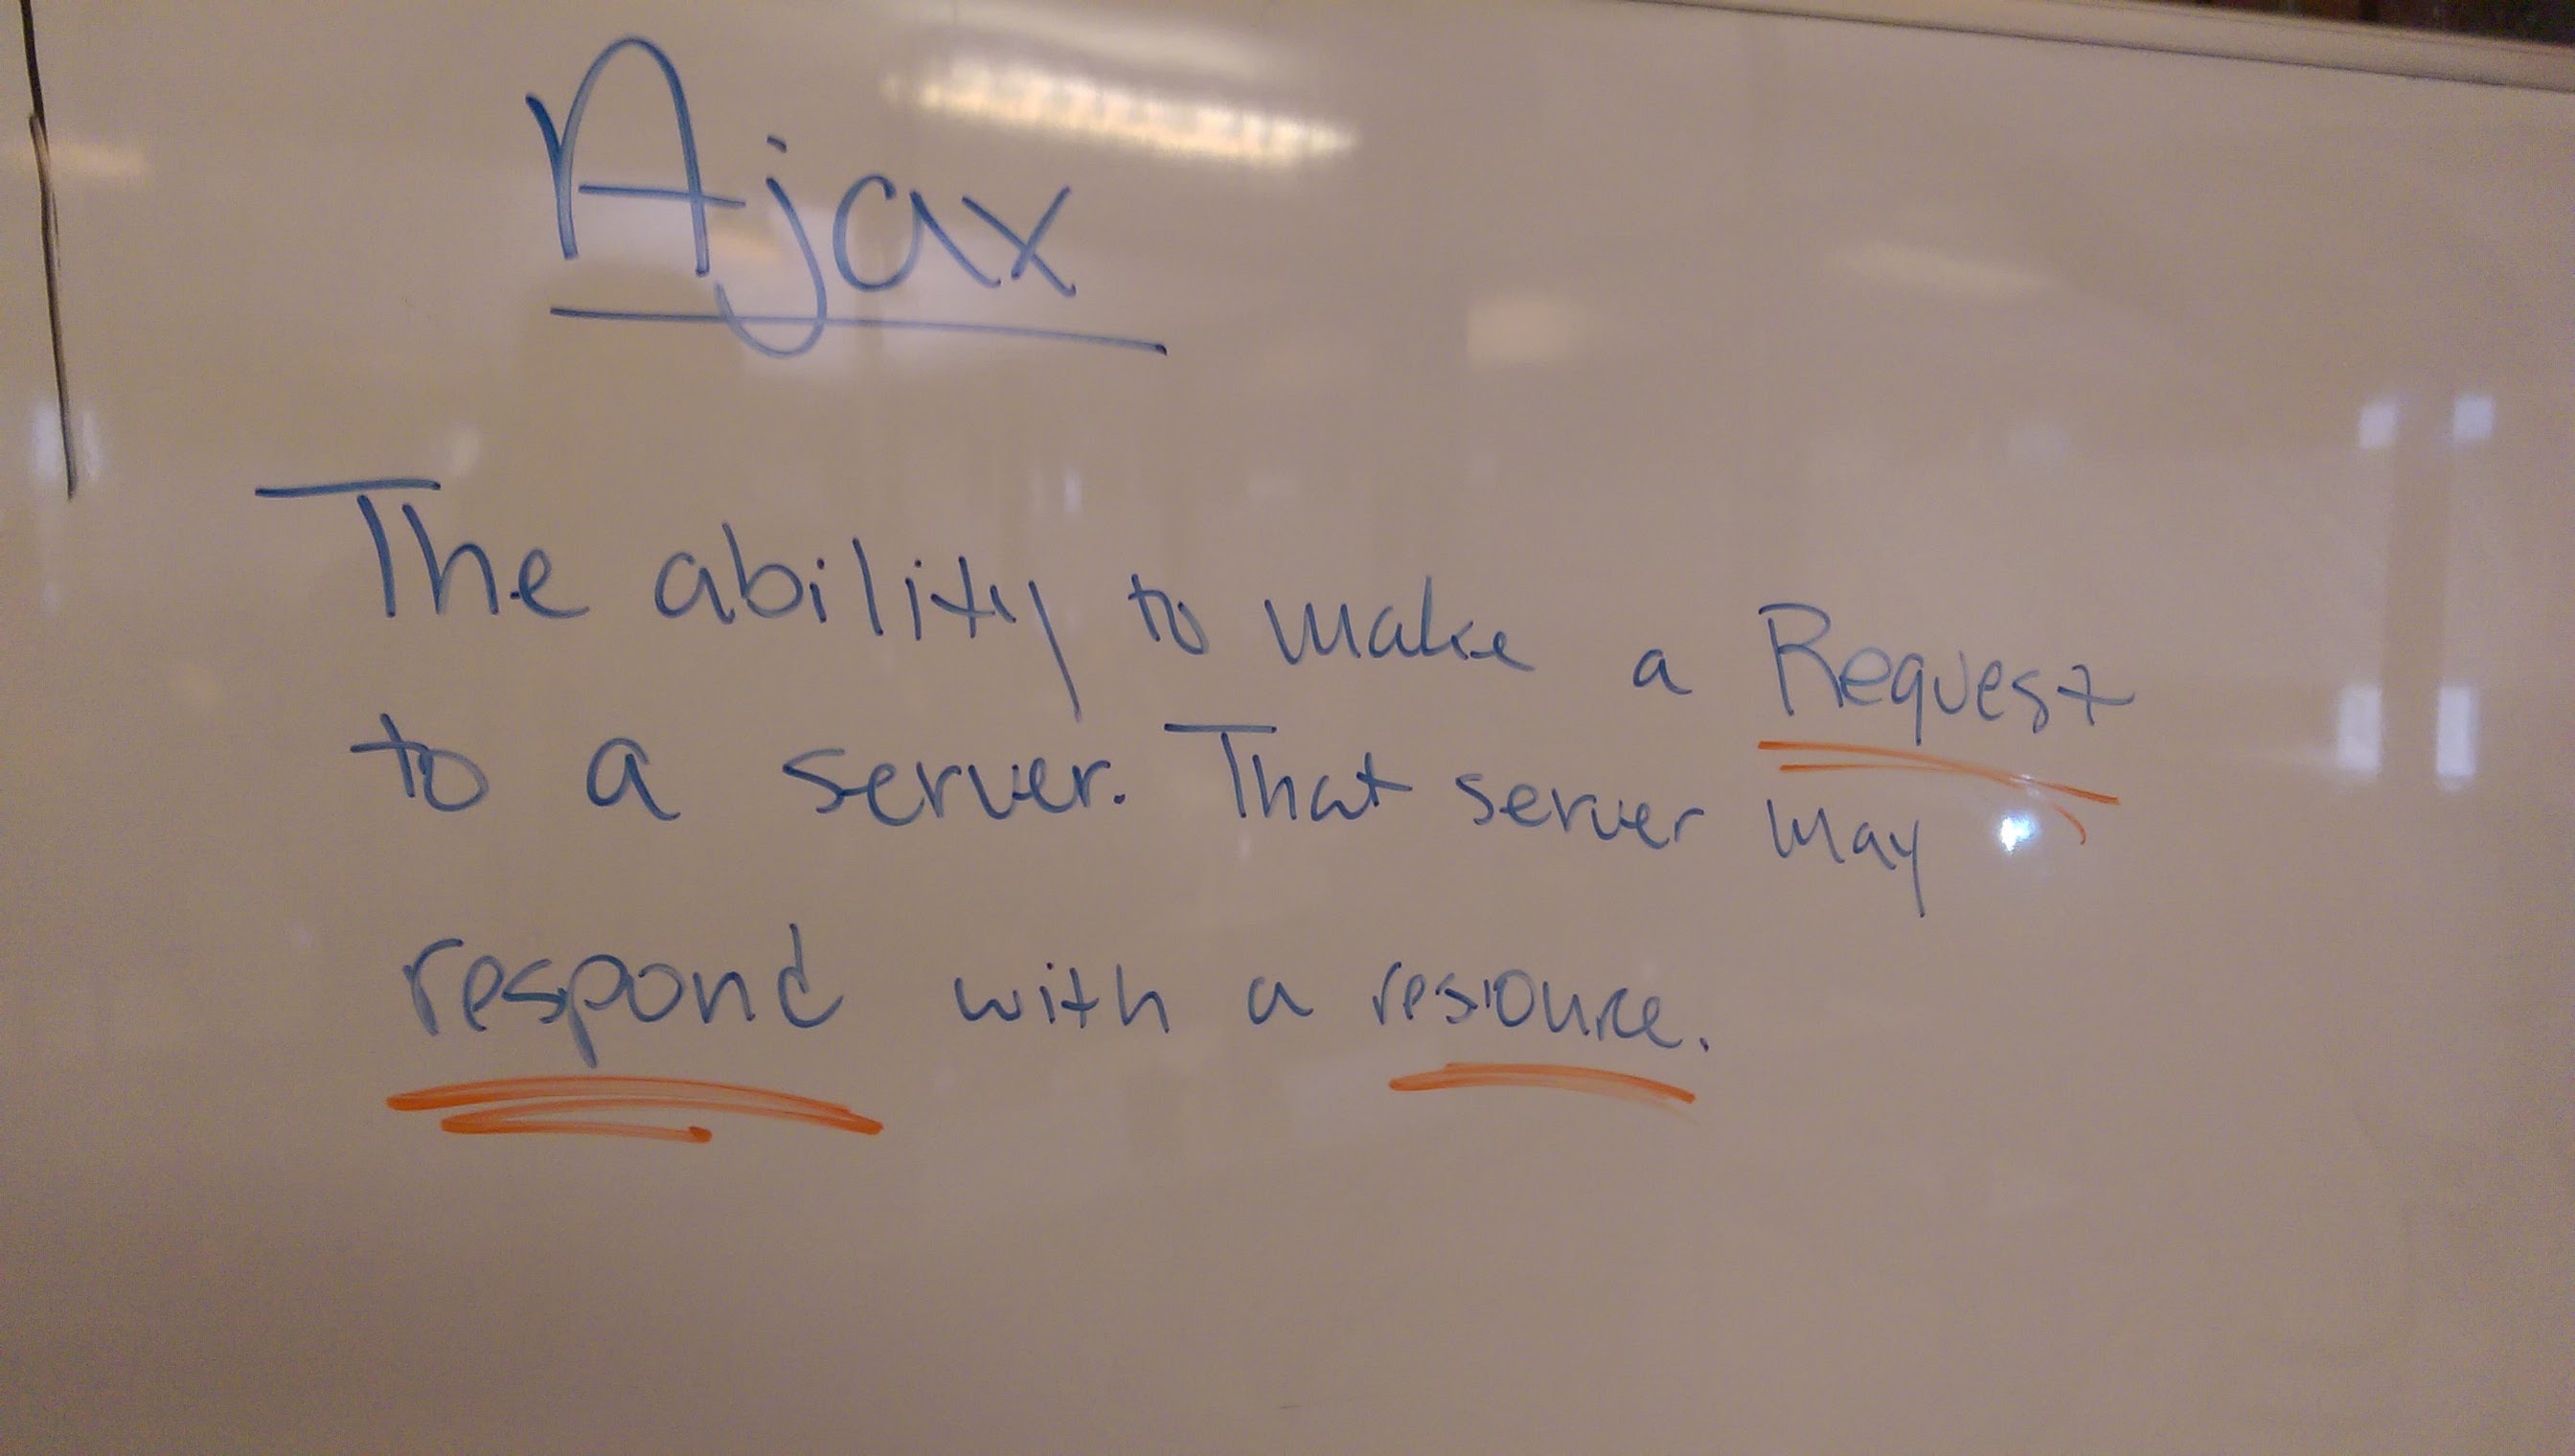 Ajax
The ability to make a Request
to a server. That server may
respond with a resource.